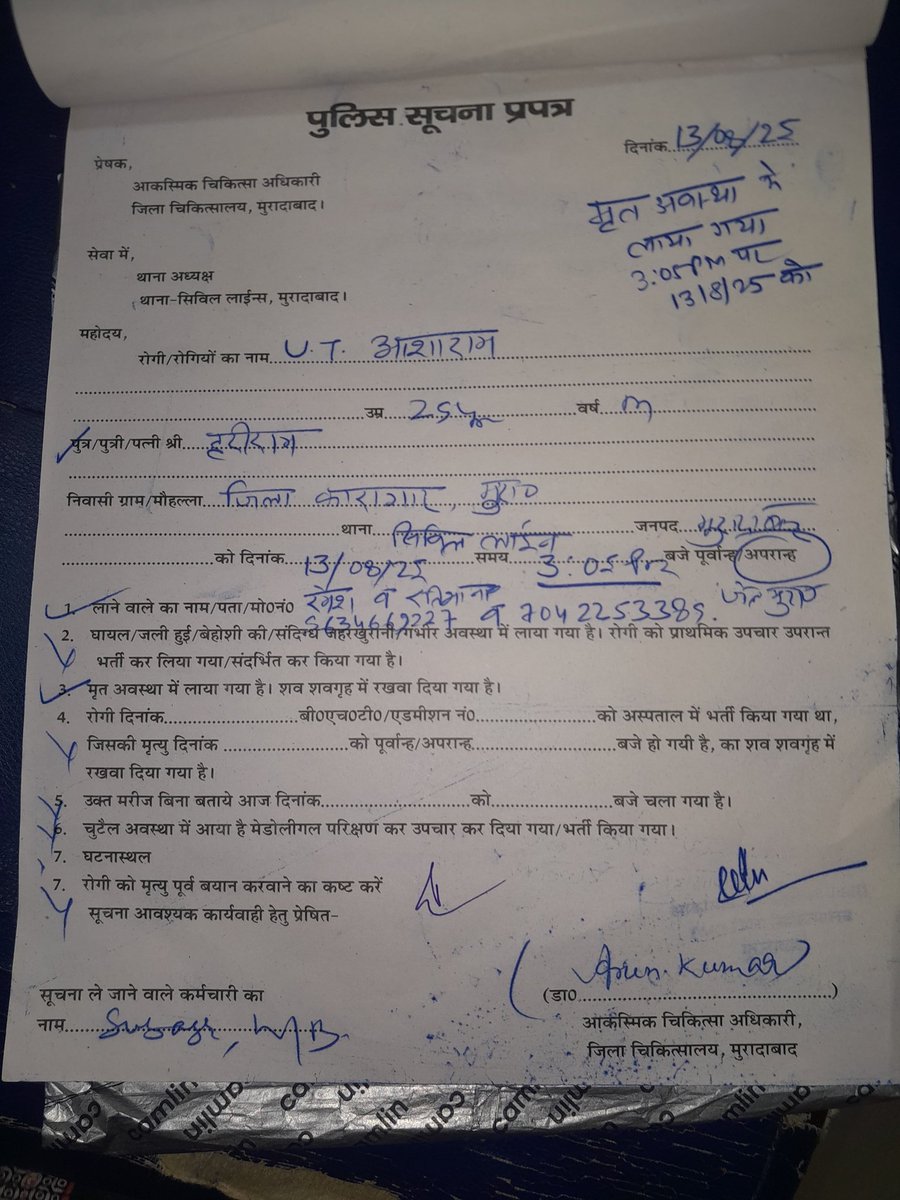 पुलिस सूचना प्रपत्र
दिनांक 13/08/25
प्रेषक,
आकस्मिक चिकित्सा अधिकारी
जिला चिकित्सालय, मुरादाबाद।
मृत अवस्था में
लाया गया
3:05 PM पर
13/8/25 को
सेवा में,
थाना अध्यक्ष
थाना-सिविल लाईन्स, मुरादाबाद।
महोदय,
रोगी/रोगियों का नाम U.T. आशाराम
उम्र वर्ष m
पुत्र/पुत्री/पत्नी श्री हरीराम
निवासी ग्राम/मौहल्ला जिला कारागार, मुरा०
थाना सिविल लाईन जनपद मुरादाबाद
को दिनांक 13/08/25 समय 3:05 Pm बजे पूर्वान्ह/अपरान्ह
1. लाने वाले का नाम/पता/मो०नं० रमेश व जेल मुरा०
व 7042253389
2. घायल/जली हुई/बेहोशी की/संदिग्ध जहरखुरानी/गंभीर अवस्था में लाया गया है। रोगी को प्राथमिक उपचार उपरान्त
भर्ती कर लिया गया/संदर्भित कर किया गया है।
3. मृत अवस्था में लाया गया है। शव शवगृह में रखवा दिया गया है।
4. रोगी दिनांक बी०एच०टी०/एडमीशन नं० को अस्पताल में भर्ती किया गया था,
जिसकी मृत्यु दिनांक को पूर्वान्ह/अपरान्ह बजे हो गयी है, का शव शवगृह में
रखवा दिया गया है।
5. उक्त मरीज बिना बताये आज दिनांक को बजे चला गया है।
6. चुटैल अवस्था में आया है मेडोलीगल परिक्षण कर उपचार कर दिया गया/भर्ती किया गया।
7. घटनास्थल
7. रोगी को मृत्यु पूर्व बयान करवाने का कष्ट करें
सूचना आवश्यक कार्यवाही हेतु प्रेषित-
सूचना ले जाने वाले कर्मचारी का
नाम
(डा० Arun Kumar)
आकस्मिक चिकित्सा अधिकारी,
जिला चिकित्सालय, मुरादाबाद
camlin camlin camlin